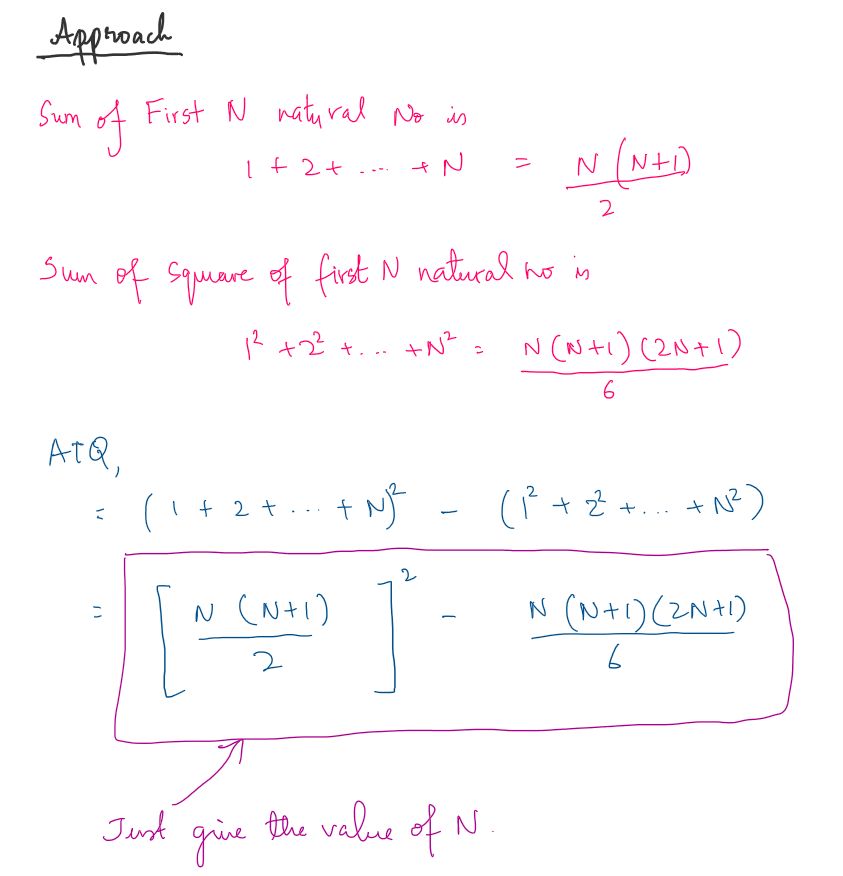 Approach
Sum of First N natural No is
1 + 2 + ... + N = N (N+1) / 2
Sum of Square of first N natural no is
1² + 2² + ... + N² = N (N+1) (2N+1) / 6
ATQ,
= (1 + 2 + ... + N)² - (1² + 2² + ... + N²)
= [ N (N+1) / 2 ]² - N (N+1) (2N+1) / 6
Just give the value of N.